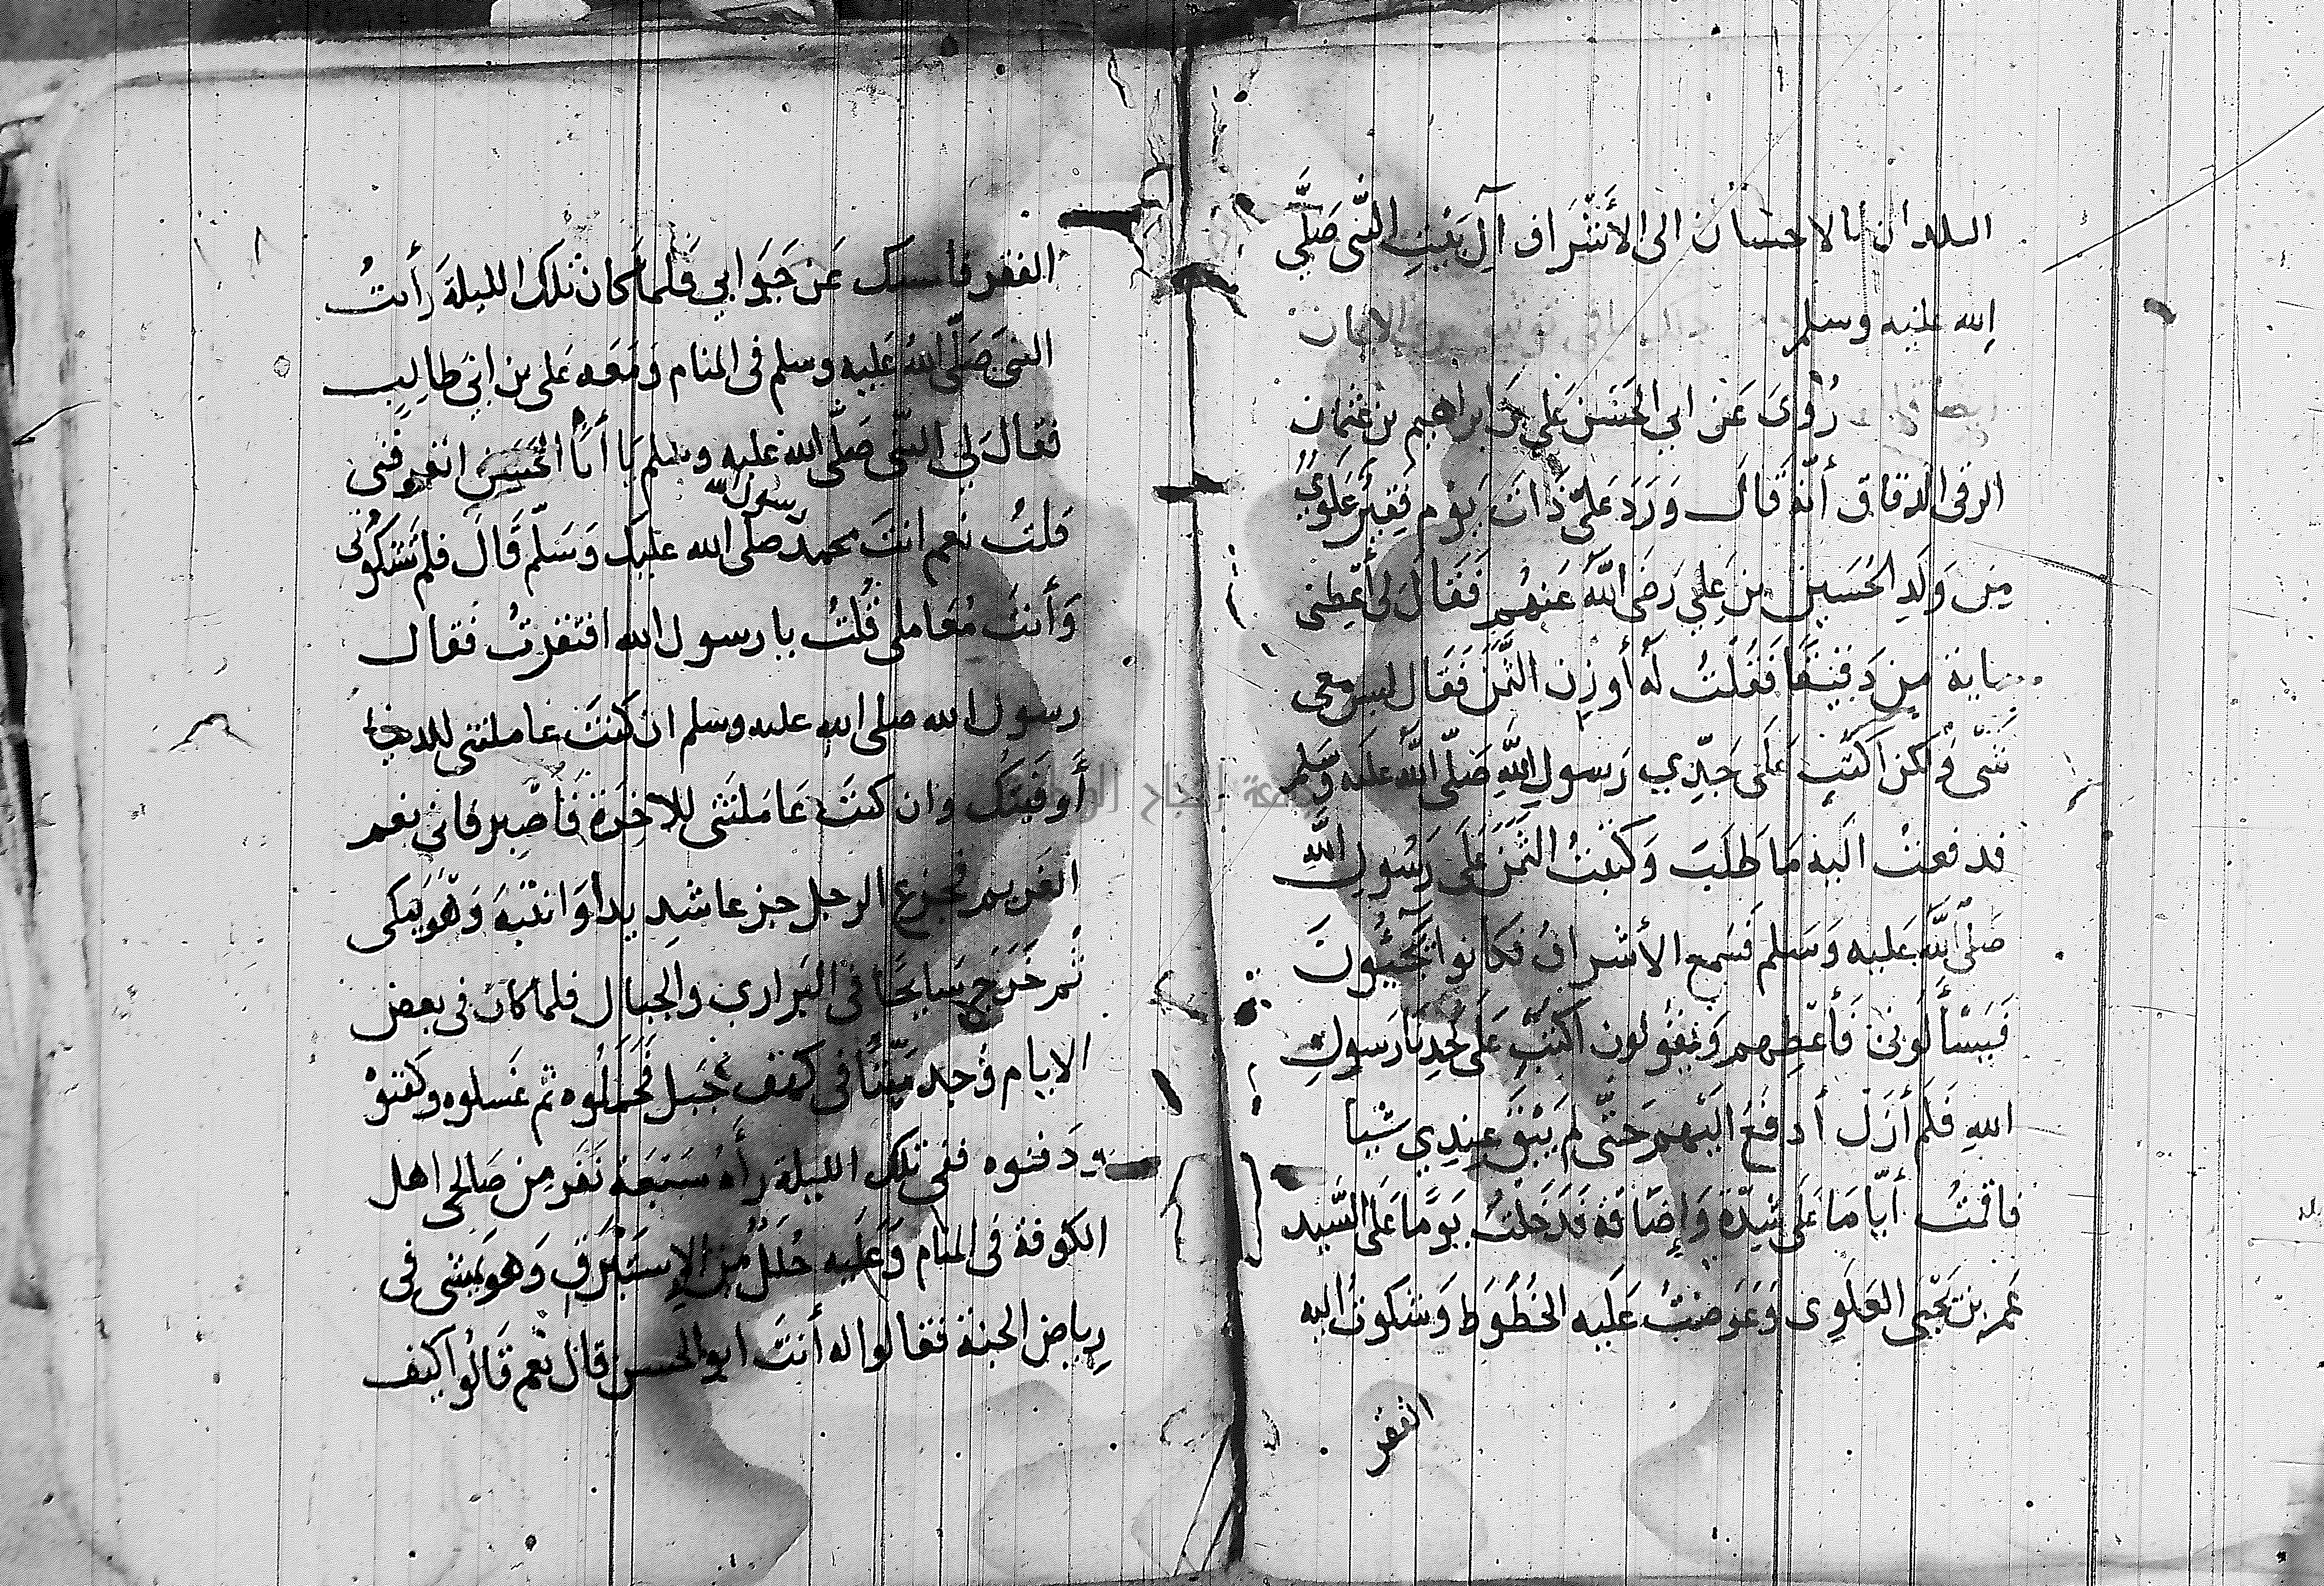 البلدان بالاحسان الى الأشراف آل بَيْتِ النَّبى صَلَّى
الله عليه وسلم ذلك الايمان
ايضا رُوِىَ عَن ابي الحَسَن عَلى بن ابراهيم بن عثمان
الرقى الدقاق أنّه قَالَ وَرَدَ عَلىّ ذَاتَ يَوم فقير عَلَوىٌّ
مِن وَلَدِ الحُسَين بن عَلِي رَضى اللَّه عَنهُم فَقَالَ لى أعْطِنى
من دَقيقًا فَقُلتُ لَه أوزِن الثَّمَن فَقَال ليس معى
شَىّ ولكن اكتب عَلَى جَدِّي رَسولِ اللَّهِ صَلّى اللَّه عَلَيه وَسَلم
فدفعتُ اليه مَا طَلَبَ وَكَتَبتُ الثَّمَن عَلَى رَسُولِ اللَّه
صَلى اللَّه عَليه وَسَلم فَسَمع الأشراف فكانوا يَجيئونَ
فَيَسْأَلُونى فَأعْطِيهم وَيَقُولون اكتب عَلَى جَدِنَا رَسولِ
اللهِ فَلَم أزَلْ أدفَعُ اليْهم حَتّى لم يَبْقَ عِندِي شيا
فاقمتُ أيّامَا عَلى شِدّة وَإضَاقة فَدَخَلتُ يَومًا عَلى السَّيد
عَمر بن يَحْيَى العَلَوى وَعَرَضتُ عَلَيه الخُطُوط وَشكَوتُ اليه
الفقر
الفقر فامسك عَن جَوَابي فَلما كان تلك الليلة رَأيتُ
النبىَ صَلَّى الله عَليه وسلم فى المنام وَمَعَه عَلى بن ابى طالِبٍ
فقالَ لي النّبى صَلَّى الله عليه وسلم يَا أبَا الحَسَن اتعرفنى
قلتُ نعم انتَ محمد رسول الله صَلّى الله عليك وَسَلّم قَالَ فلم تشكُونى
وَأنتَ مُعَاملى قُلتُ يا رسول الله افتقرتُ فقال
رسول الله صلى الله عليه وسلم ان كنتَ عاملتنى للدنيا
أَوفَيتكَ وان كنتَ عَامَلتَنى للاخِرَة فَاصبر فانى نعم
الغريم فجزع الرجل جزعا شَدِيداً وَانتَبَه وَهو يَبكى
ثم خَرَج سَايحًا فى البَرارى والجبال فلما كان فى بعض
الايام وُجد مَيّتًا فى كهف جَبل فَحَمَلُوه ثم غسلوه وكفنوْ
وَدَفنوه ففى تلك الليلة رَأهُ سَبْعَة نَفَر مِن صَالحى اهل
الكوفة فى المنام وَعَليه حُلَلٌ مِن الإستَبْرَق وَهو يَمشى فى
رِياض الجنة فقالوا له أنتَ ابو الحسن قال نعم قَالُوا كيف